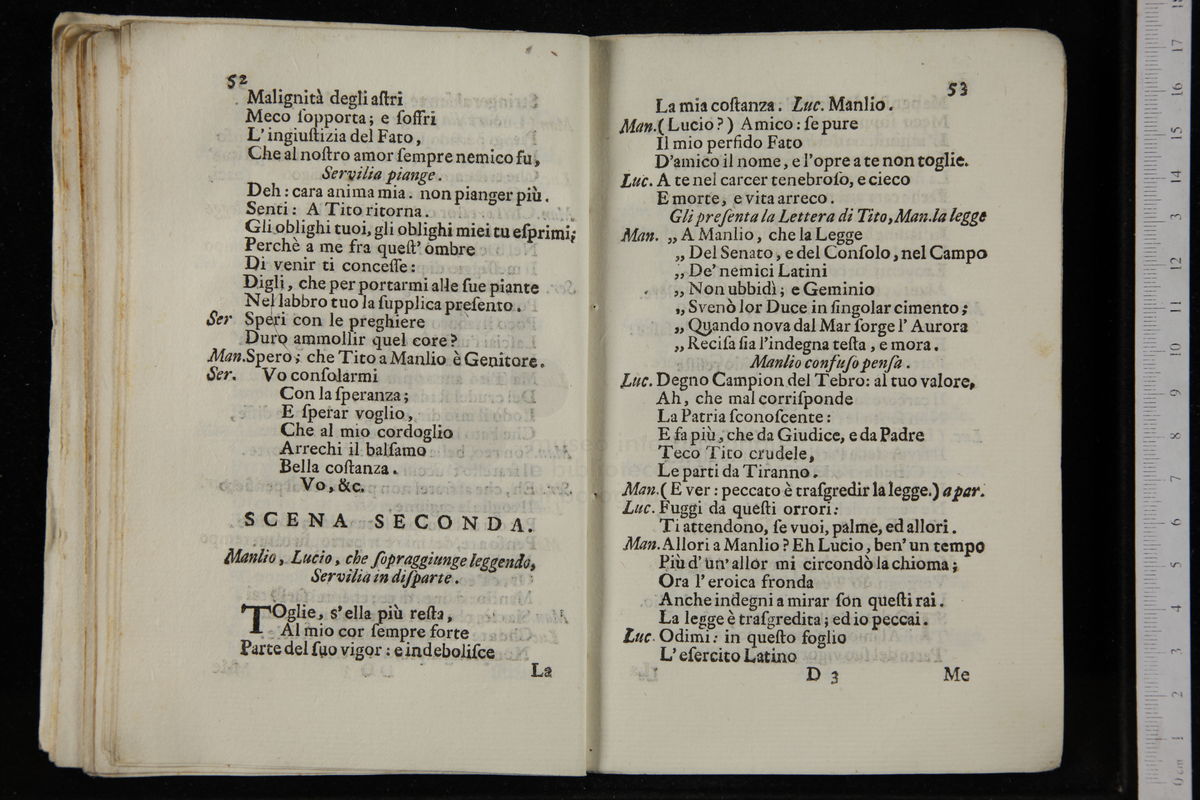 52
Malignità degli aſtri
Meco ſopporta; e ſoffri
L' ingiuſtizia del Fato,
Che al noſtro amor ſempre nemico fu,
Servilia piange.
Deh: cara anima mia. non pianger più.
Senti: A Tito ritorna.
Gli oblighi tuoi, gli oblighi miei tu eſprimi;
Perchè a me fra queſt' ombre
Di venir ti conceſſe:
Digli, che per portarmi alle ſue piante
Nel labbro tuo la ſupplica preſento.
Ser Speri con le preghiere
Duro ammollir quel core?
Man. Spero; che Tito a Manlio è Genitore.
Ser. Vo conſolarmi
Con la ſperanza;
E ſperar voglio,
Che al mio cordoglio
Arrechi il balſamo
Bella coſtanza.
Vo, &c.
SCENA SECONDA.
Manlio, Lucio, che ſopraggiunge leggendo,
Servilia in diſparte.
TOglie, s' ella più reſta,
Al mio cor ſempre forte
Parte del ſuo vigor: e indeboliſce
La
53
La mia coſtanza. Luc. Manlio.
Man. (Lucio?) Amico: ſe pure
Il mio perfido Fato
D'amico il nome, e l'opre a te non toglie.
Luc. A te nel carcer tenebroſo, e cieco
E morte, e vita arreco.
Gli preſenta la Lettera di Tito, Man. la legge
Man. „ A Manlio, che la Legge
„ Del Senato, e del Conſolo, nel Campo
„ De' nemici Latini
„ Non ubbidì; e Geminio
„ Svenò lor Duce in ſingolar cimento;
„ Quando nova dal Mar ſorge l' Aurora
„ Reciſa ſia l'indegna teſta, e mora.
Manlio confuſo penſa.
Luc. Degno Campion del Tebro: al tuo valore,
Ah, che mal corriſponde
La Patria ſconoſcente:
E fa più, che da Giudice, e da Padre
Teco Tito crudele,
Le parti da Tiranno.
Man. (E ver: peccato è traſgredir la legge.) a par.
Luc. Fuggi da queſti orrori:
Ti attendono, ſe vuoi, palme, ed allori.
Man. Allori a Manlio? Eh Lucio, ben' un tempo
Più d' un' allor mi circondò la chioma;
Ora l' eroica fronda
Anche indegni a mirar ſon queſti rai.
La legge è traſgredita; ed io peccai.
Luc. Odimi: in queſto foglio
L' eſercito Latino
D 3 Me